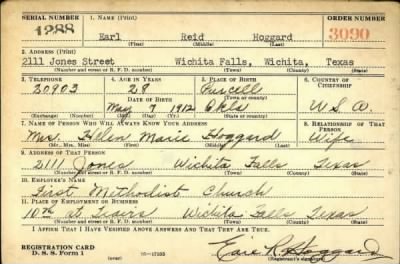 SERIAL NUMBER 1. NAME (Print) ORDER NUMBER
1288 Earl Reid Hoggard 3090
(First) (Middle) (Last)
2. ADDRESS (Print)
2111 Jones Street Wichita Falls, Wichita, Texas
(Number and street or R. F. D. number) (Town) (County) (State)
3. TELEPHONE 4. AGE IN YEARS 5. PLACE OF BIRTH 6. COUNTRY OF CITIZENSHIP
20903 28 Purcell
DATE OF BIRTH (Town or county)
May 7 1912 Okla U.S.A.
(Exchange) (Number) (Mo.) (Day) (Yr.) (State or country)
7. NAME OF PERSON WHO WILL ALWAYS KNOW YOUR ADDRESS 8. RELATIONSHIP OF THAT PERSON
Mrs. Helen Marie Hoggard Wife
(Mr., Mrs., Miss) (First) (Middle) (Last)
9. ADDRESS OF THAT PERSON
2111 Jones Wichita Falls Texas
(Number and street or R. F. D. number) (Town) (County) (State)
10. EMPLOYER'S NAME
First Methodist Church
11. PLACE OF EMPLOYMENT OR BUSINESS
10th St. Wichita Falls Texas
(Number and street or R. F. D. number) (Town) (County) (State)
I AFFIRM THAT I HAVE VERIFIED ABOVE ANSWERS AND THAT THEY ARE TRUE.
REGISTRATION CARD
D. S. S. Form 1 Earl R. Hoggard
(Registrant's signature)